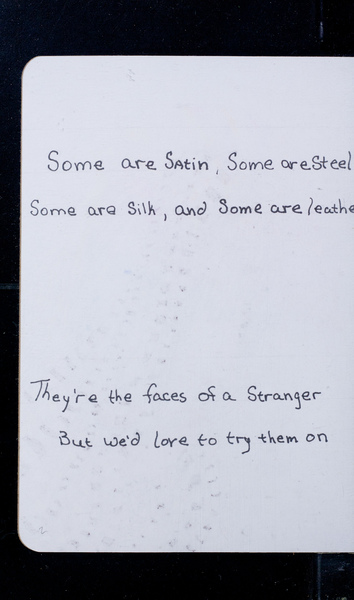 Some are SAtin, Some are Steel
Some are Silk, and Some are leathe
They're the faces of a Stranger
But we'd love to try them on